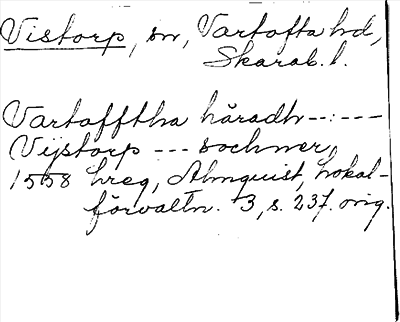 Vistorp, sn, Vartofta hd,
Skarab. l.
Vartofftha häradh --:---
Vijstorp --- sochner,
1558 hreg, Almquist, Lokal-
förvaltn. 3, s. 237. orig.